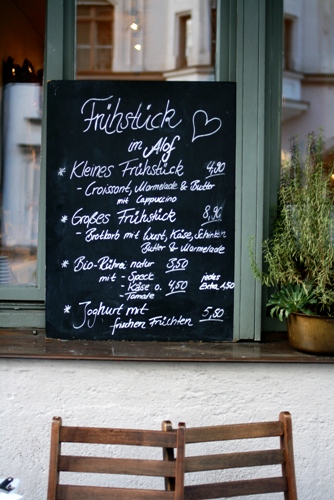 Frühstück
im Alof
* Kleines Frühstück 4,80
- Croissant, Marmelade & Butter
mit Cappuccino
* Großes Frühstück 8,90
- Brotkorb mit Wurst, Käse, Schinken
Butter & Marmelade
* Bio-Rührei natur 3,50
mit - Speck jedes
Käse o. 4,50 Extra 1,50
- Tomate
* Joghurt mit 5,50
frischen Früchten